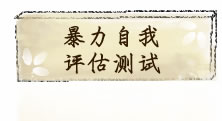 暴力自我
评估测试